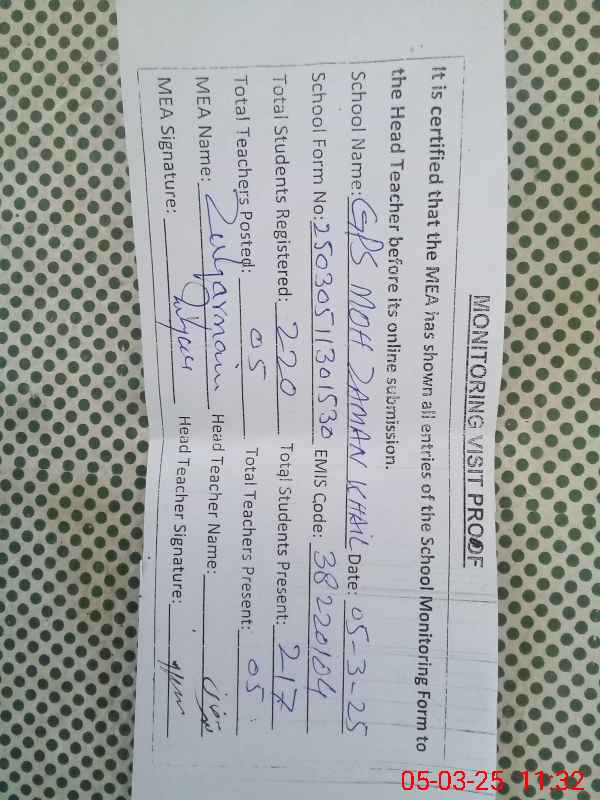 MONITORING VISIT PROOF
It is certified that the MEA has shown all entries of the School Monitoring Form to
the Head Teacher before its online submission.
School Name: GPS MOH ZAMAN KHAIL Date: 05-3-25
School Form No: 25030511301530 EMIS Code: 38220104
Total Students Registered: 220 Total Students Present: 217
Total Teachers Posted: 05 Total Teachers Present: 05
MEA Name: Head Teacher Name:
MEA Signature: Head Teacher Signature:
05-03-25 11:32